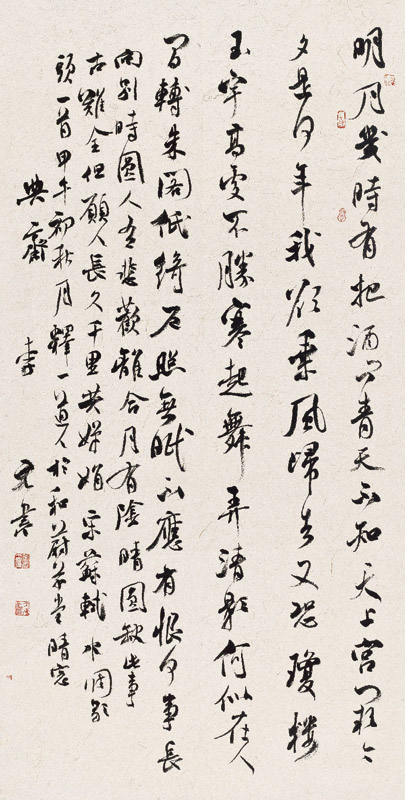 明月幾時有把酒问青天不知天上宫闕今
夕是何年我欲乘風歸去又恐瓊樓
玉宇高處不勝寒起舞弄清影何似在人
间轉朱阁低綺户照無眠不應有恨何事長
向别時圓人有悲歡離合月有陰晴圓缺此事
古難全但願人長久千里共嬋娟宋蘇軾水调歌
頭一首甲午初秋月釋一道人於和蔚堂晴窓
典齋李書